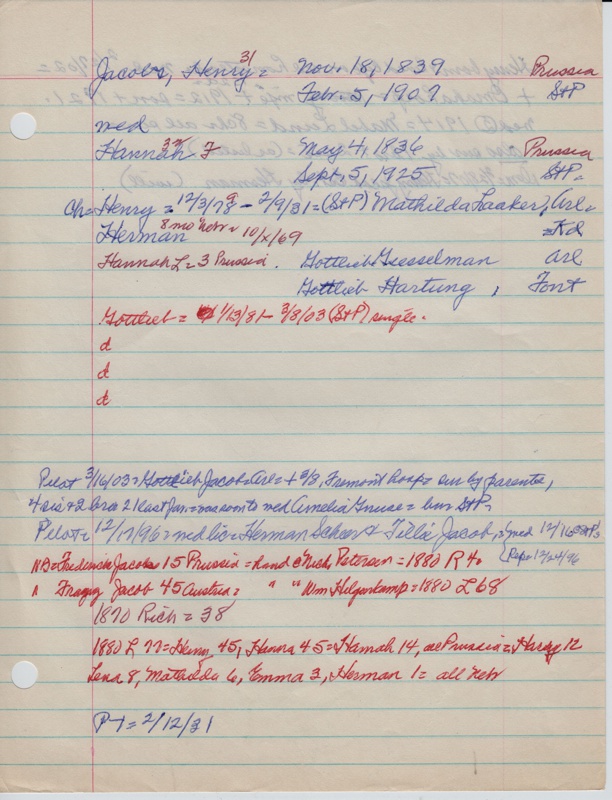 Jacobs, Henry 31 = Nov. 18, 1839 Prussia
Febr. 5, 1907 StP
med
Hannah 32 F May 4, 1836 Prussia
Sept. 5, 1925 StP=
Ch= Henry = 12/3/78 9 - 2/9/31 = (StP) Mathilda Laaker, Arl=
Herman 8 mo Nebr = 10/x/69 = Kd
Hannah L = 3 Prussia. Gottlieb Giesselman Arl
Gottlieb Hartung, Font
Gottlieb = 1/13/81 - 3/8/03 (StP) single.
d
d
d
Pilot 3/16/03 = Gottlieb Jacob = Arl = + 3/8, Fremont hosp = sur by parents,
4 sis + 2 bros 21 last Jan. = was soon to wed Amelia = bur StP=
Pilot = 12/17/96 = med lic = Herman Scheer + Tilla Jacob, = med 12/16 StP=
(Rep = 12/24/96
NB = Frederick Jacobs 15 Prussia = hand c Nich Petersen = 1880 R 40
" Franz Jacob 45 Austria = " " Wm Hilgenkamp = 1880 L 68
1870 Rich = 38
1880 L 77 = Henry, 45, Hanna 45 = Hannah 14, all Prussia = Henry 12
Lena 8, Matilda 6, Emma 3, Herman 1 = all Nebr
P-T = 2/12/31